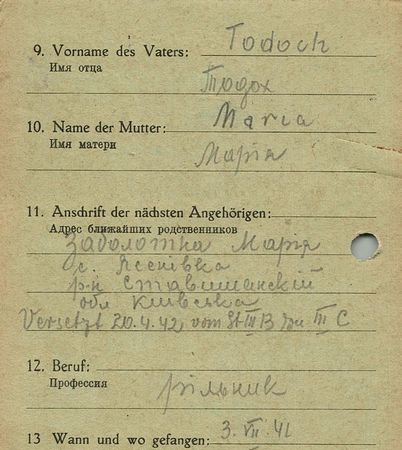 9. Vorname des Vaters: Todoch
Имя отца
Тодох
10. Name der Mutter: Maria
Имя матери
Марія
11. Anschrift der nächsten Angehörigen:
Адрес ближайших родственников
Заболотна Марія
с. Яснівка
р-н Ставищанскій
обл Київська
Versetzt 20.4.42, vom St III B zu III C
12. Beruf:
Профессия
рільник
13 Wann und wo gefangen: 3. VII. 41